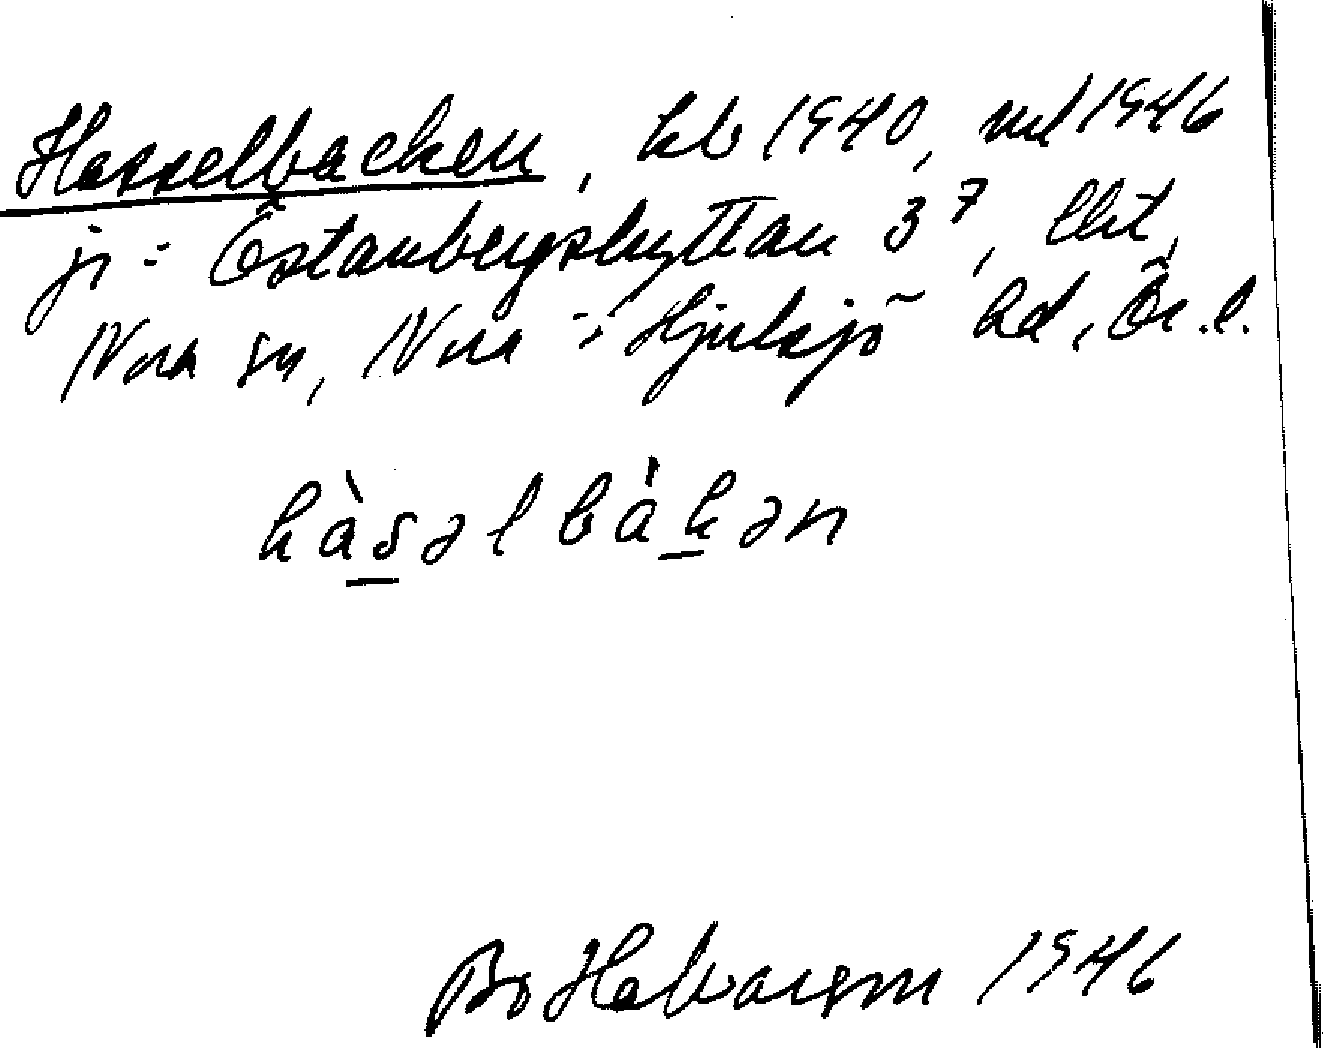 Hasselbacken, kb 1940, ml 1946
ji = Östanbergshyttan 3⁷, lht,
Nora sn, Nora o. Hjulsjö hd, Ör. l.
hàsəlbákən
Bo Helvargm 1946